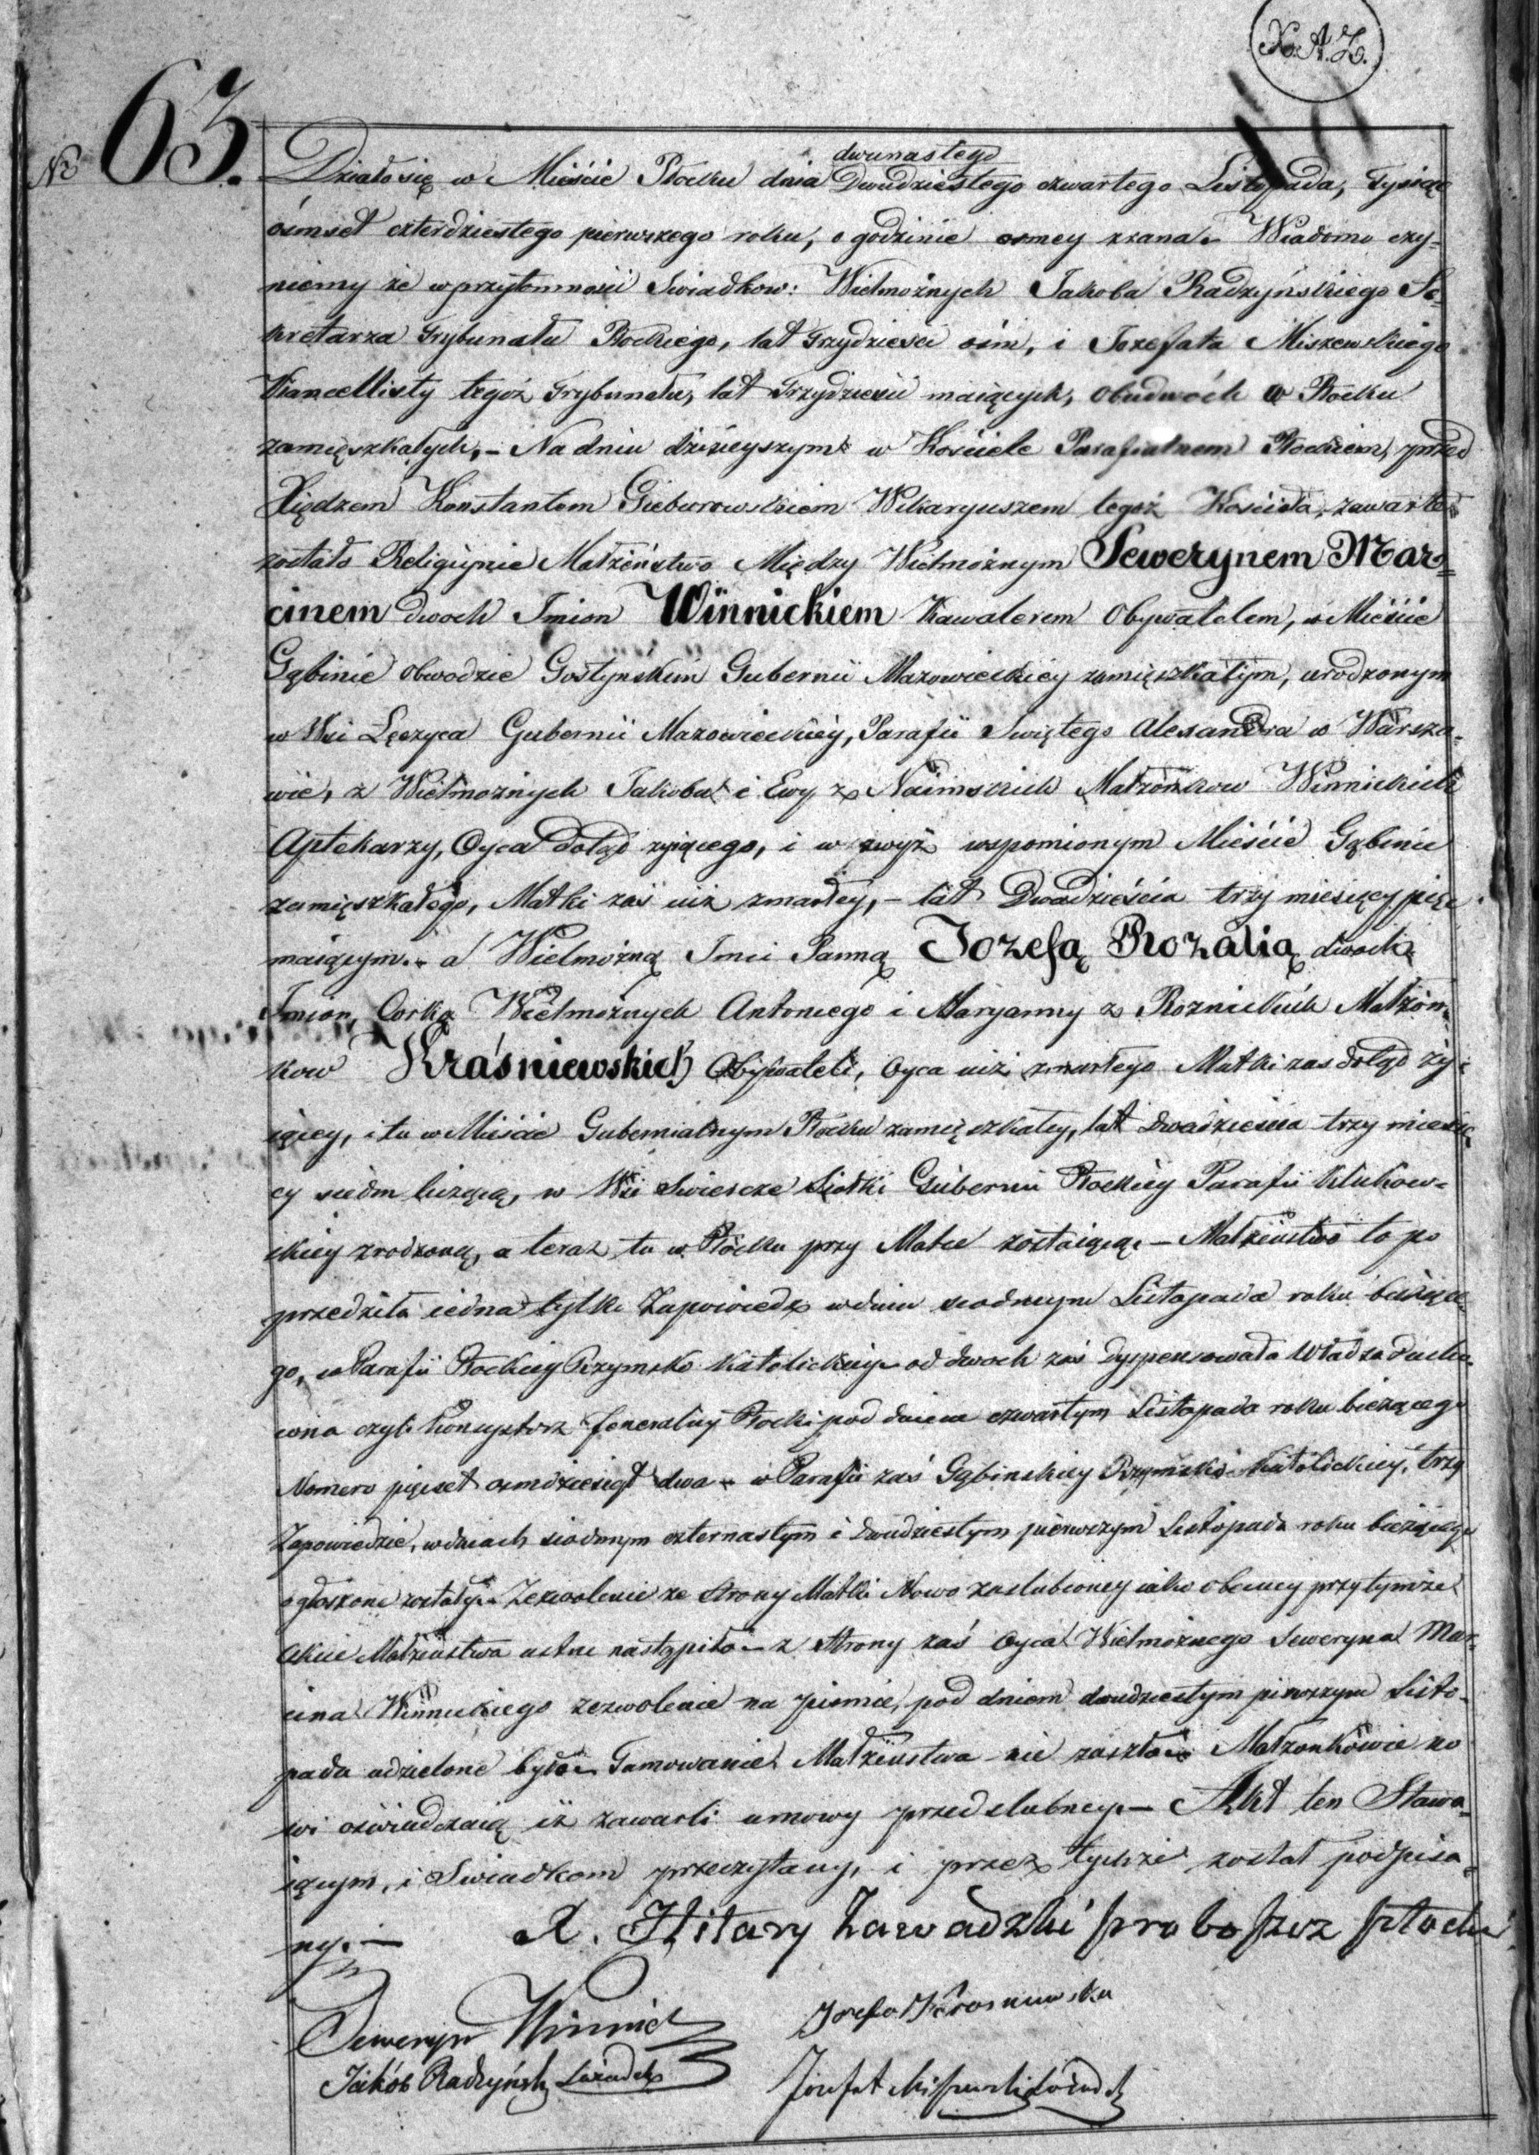 X. A. Z.
№ 63.
dwunastego
Działo się w Mieście Płocku dnia Dwudziestego czwartego Listopada, Tysiąc
ośmset czterdziestego pierwszego roku, o godzinie osmey zrana.- Wiadomo czy-
niemy że w przytomności Swiadkow: Wielmożnych Jakoba Radzyńskiego Se-
kretarza Trybunału Płockiego, lat Trzydzieści ośm, i Jozefata Miszewskiego
Kancellisty tegoż Trybunału, lat Trzydzieści maiących, obudwóch w Płocku
zamięszkałych,- Na dniu dzisieyszym w Kościele Parafialnem Płockiem, przed
Xiędzem Konstantem Gieburowskiem Wikaryuszem tegoż Kościoła, zawarte
zostało Religiynie Małżeństwo Między Wielmożnym Sewerynem Mar=
cinem dwoch Imion Winnickiem Kawalerem Obywatelem, w Mieście
Gąbinie obwodzie Gostynskim Gubernii Mazowieckiey zamięszkałym, urodzonym
w Wsi Łęczyca Gubernii Mazowieckiey, Parafii Swiętego Alexandra w Warsza-
wie, z Wielmożnych Jakoba i Ewy z Naimskich Małżonkow Winnickich
Aptekarzy, Oyca dotąd żyiącego, i w zwyż wspomionym Mieście Gąbinie
zamięszkałego, Matki zaś iuż zmarłey,- lat Dwadzieścia trzy miesięcy pięć
maiącym.- a Wielmożną Imci Panną Jozefą Rozalią dwoch
Imion, Corką Wielmożnych Antoniego i Maryanny z Roznickich Małżon-
kow Kraśniewskich Obywateli, Oyca iuż zmarłego Matki zas dotąd ży-
iącey, i tu w Mieście Gubernialnym Płocku zamięszkałey, lat dwadzieścia trzy miesię-
cy siedm liczącą, w Wsi Swiercze Siołki Gubernii Płockiey Parafii Klukow-
skiey zrodzoną, a teraz tu w Płocku przy Matce zostaiącą.- Małżeństwo to po
przedziła iedna tylko Zapowiedz w dniu siodmym Listopada roku bieżące-
go, w Parafii Płockiey Rzymsko Katolickiey od dwoch zaś dyspensowała Władza ducho-
wna czyli Konsystorz Jeneralny Płocki pod dniem czwartym Listopada roku bieżącego
Numero pięcset osmdziesiąt dwa.- w Parafii zaś Gąbinskiey Rzymsko Katolickiey, trzy
Zapowiedzie, w dniach siodmym czternastym i dwudziestym pierwszym Listopada roku bieżącego
ogłoszone zostały.- Zezwolenie ze strony Matki Nowo zaslubioney iako obecney przy tymże
akcie Małżeństwa ustne nastąpiło.- z strony zaś Oyca Wielmożnego Seweryna Mar-
cina Winnickiego zezwolenie na pismie, pod dniem dwudziestym pierwszym Listo-
pada udzielone było.- Tamowanie Małżeństwa nie zaszło.- Małżonkowie no
wi oświadczaią iż zawarli umowy przedslubney.- Akt ten Stawa-
iącym, i Swiadkom przeczytany, i przez tychże został podpisa-
ny.-
X. Hilary Zawadzki proboszcz płocki
Seweryn Winnicki
Jozefa Krasniewska
Jakób Radzyński świadek
Józefat Miszewski Świadek